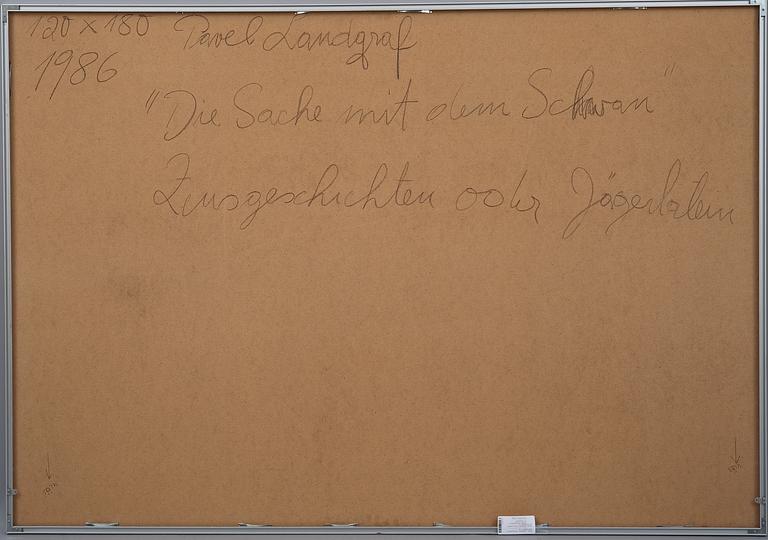 120 x 180 Pavel Landgraf
1986
"Die Sache mit dem Schwan"
Zeusgeschichten oder Jägerlatein